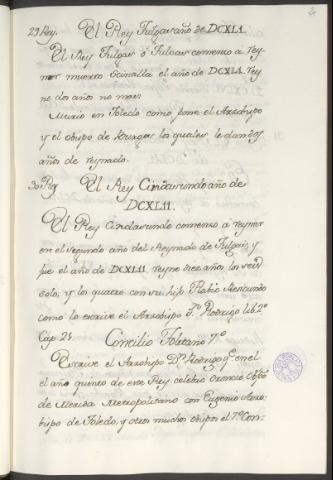 29 Rey. El Rey Fulgas año de DCXL1.
El Rey Fulgas ô Fulcas comenzo a rey-
nar muerto Scinulla el año de DCXL1. Rey-
no dos años no mas
Murio en Toledo como pone el Arzobispo
y el obispo de Burgos los quales le dan dos
años de reynado.
30º Rey El Rey Cindasundo año de
DCXL11.
El Rey Cindasundo comenzo â reynar
en el segundo año del Reynado de Fulgas, y
fue el año de DCXL11 reyno diez años los seis
solo, y los quatro con su hijo Flabio Rescundo
como lo escrive el Arzobispo Dn. Rodrigo lib. 2º
Cap. 25.
Concilio Toletano 7º
Escrive el Arzobispo Dn. Rodrigo qe. en el
el año quinto de este Rey celebro Oroncio Obpo.
de Merida Metropolitano con Eugenio Arzo-
bispo de Toledo, y otros muchos obispos el 7º Con-